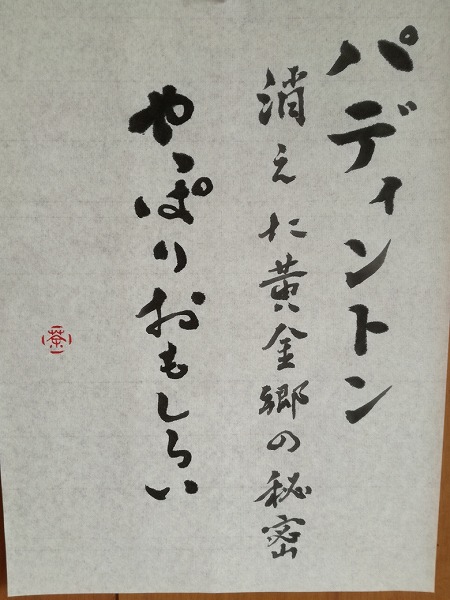 パディントン
消えた黄金郷の秘密
やっぱりおもしろい
茶